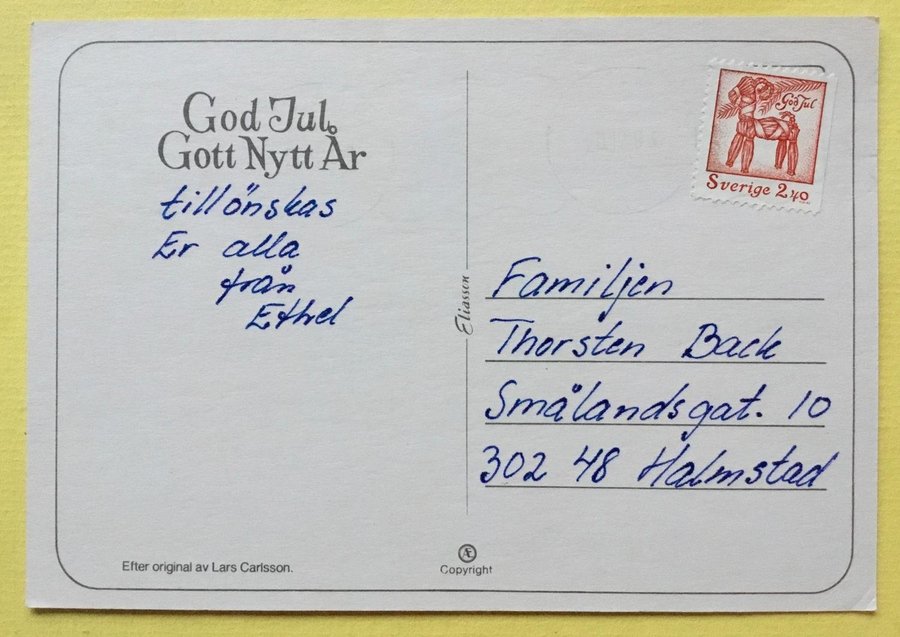 God Jul
Gott Nytt År
tillönskas
Er alla
från
Ethel
Efter original av Lars Carlsson.
Eliasson
Æ
Copyright
God Jul
Sverige 2,40
Familjen
Thorsten Back
Smålandsgat. 10
302 48 Halmstad